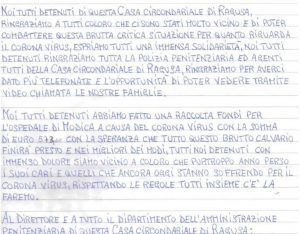 Noi tutti detenuti di questa Casa Circondariale di Ragusa,
ringraziamo a tutti coloro che ci sono stati molto vicino e di poter
combattere questa brutta critica situazione per quanto riguarda
il corona virus, espriamo tutti una immensa solidarietà, noi tutti
detenuti ringraziamo tutta la Polizia Penitenziaria ed agenti
tutti della Casa Circondariale di Ragusa, ringraziamo per averci
dato più telefonate e l'opportunità di poter vedere tramite
video chiamata le nostre famiglie.
Noi tutti detenuti abbiamo fatto una raccolta fondi per
l'ospedale di Modica a causa del corona virus con la somma
di euro con la speranza che tutto questo brutto calvario
finira presto e nei migliori dei modi, tutti noi detenuti con
immenso dolore siamo vicino a coloro che purtroppo anno perso
i suoi cari e quelli che ancora oggi stanno soffrendo per il
corona virus, rispettando le regole tutti insieme c'è la
faremo.
Al Direttore e a tutto il dipartimento dell'amministrazione
penitenziaria di questa Casa Circondariale di Ragusa: